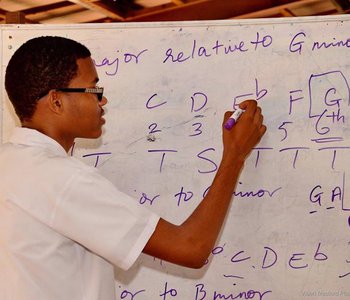 ajor relative to G mino
C D E♭ F G
2 3 5 6th
T T S T T T
or to G minor G A
C. D E♭
or to B minor